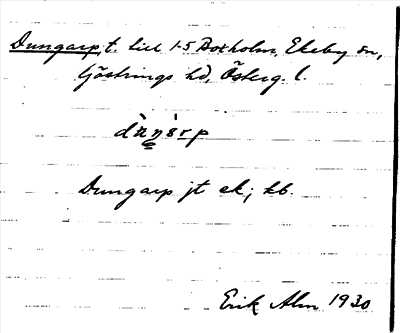 Dungarp, t. till 1-5 Boxholm, Ekeby sn,
Göstrings hd, Österg. l.
dùŋàrp
Dungarp jt ek; kb.
Erik Alm 1930